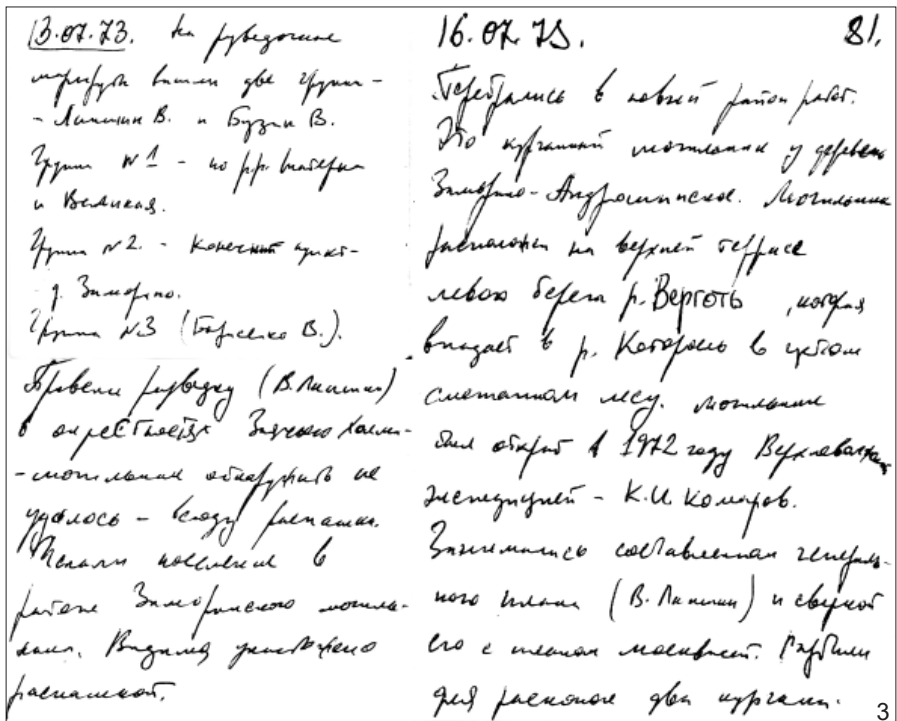 13.07.73. На разведочные
маршруты вышли две группы -
- Лапшин В. и Бузин В.
Группа №1 - по р.р.
и Великая.
Группа №2. - Конечный пункт -
д. Зиморино.
Группа №3 (Борисенко В.).
Провели разведку (В. Лапшин)
в окрестностях холма -
- могильник обнаружить не
удалось - всюду распашка.
Искали поселение в
районе Зиморинского могиль-
ника. Видимо уничтожено
распашкой.
16.07.73. 81.
Перебрались в новый район работ.
Это курганный могильник у деревень
Зиморино - Могильник
расположен на верхней террасе
левого берега р. Верготь, которая
впадает в р. Которосль в густом
смешанном лесу. Могильник
был открыт в 1972 году Верхневолжской
экспедицией - К.И. Комаров.
Занимались составлением генераль-
ного плана (В. Лапшин) и сверкой
его с планом москвичей. Разбили
для раскопок два кургана.
3